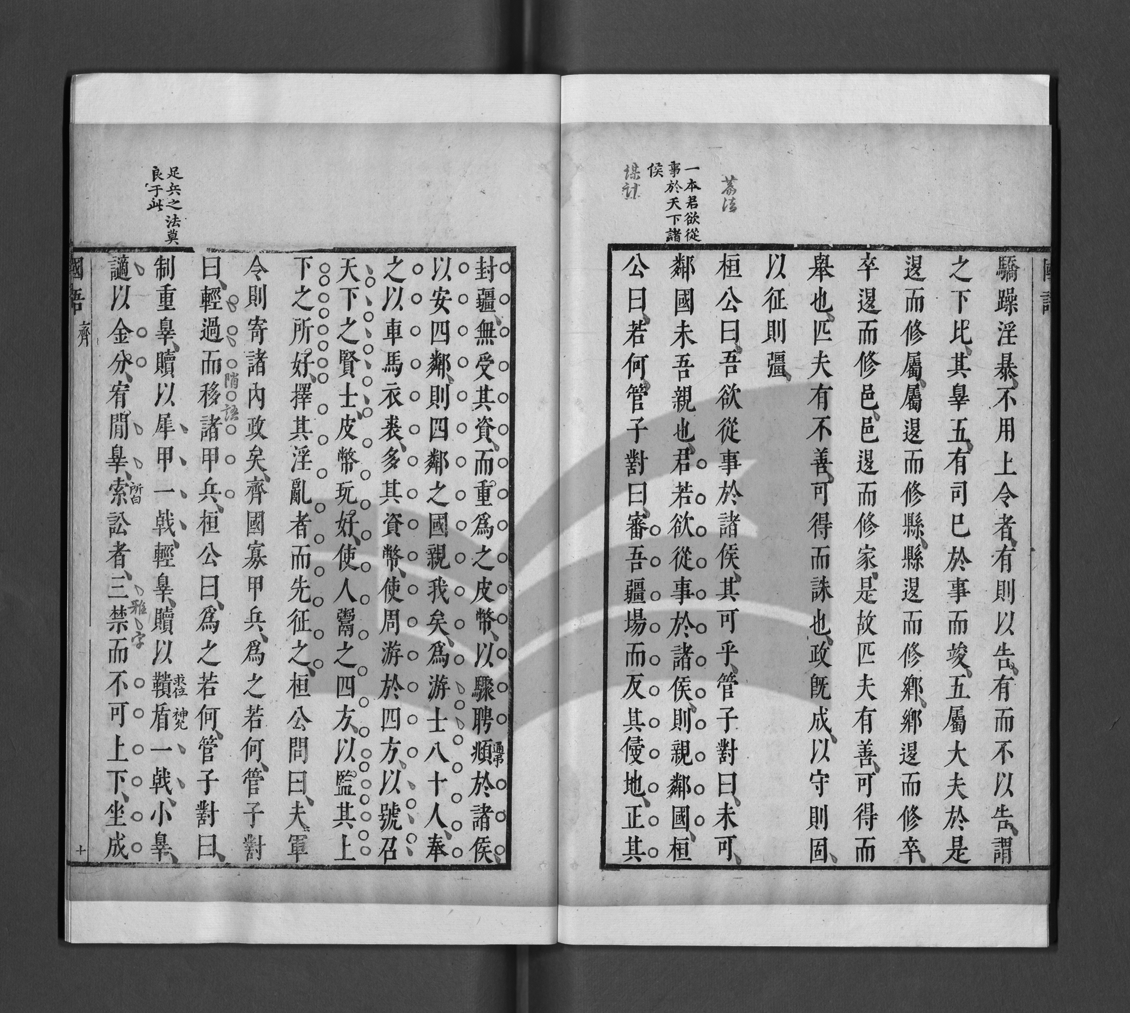 國語
驕躁淫暴、不用上令者、有則以告、有而不以告、謂
之下比、其辠五、有司已於事而竣、五屬大夫於是
退而修屬、屬退而修縣、縣退而修鄉、鄉退而修卒、
卒退而修邑、邑退而修家、是故匹夫有善、可得而
舉也、匹夫有不善、可得而誅也、政旣成、以守則固、
以征則彊、
桓公曰、吾欲從事於諸侯、其可乎、管子對曰、未可、
鄰國未吾親也、君若欲從事於諸侯、則親鄰國、桓
公曰、若何、管子對曰、審吾疆場而反其侵地、正其
一本君欲從
事於天下諸
侯
封疆、無受其資、而重爲之皮幣、以驟聘頫於諸侯、
以安四鄰、則四鄰之國親我矣、爲游士八十人、奉
之以車馬衣裘、多其資幣、使周游於四方、以號召
天下之賢士、皮幣玩好、使人鬻之四方、以監其上
下之所好、擇其淫亂者而先征之、桓公問曰、夫軍
令則寄諸內政矣、齊國寡甲兵、爲之若何、管子對
曰、輕過而移諸甲兵、桓公曰、爲之若何、管子對曰、
制重辠、贖以犀甲一戟、輕辠、贖以鞼盾一戟、小辠、
讁以金分、宥閒辠、索訟者、三禁而不可上下、坐成
足兵之法莫
良于此
國語
齊
十